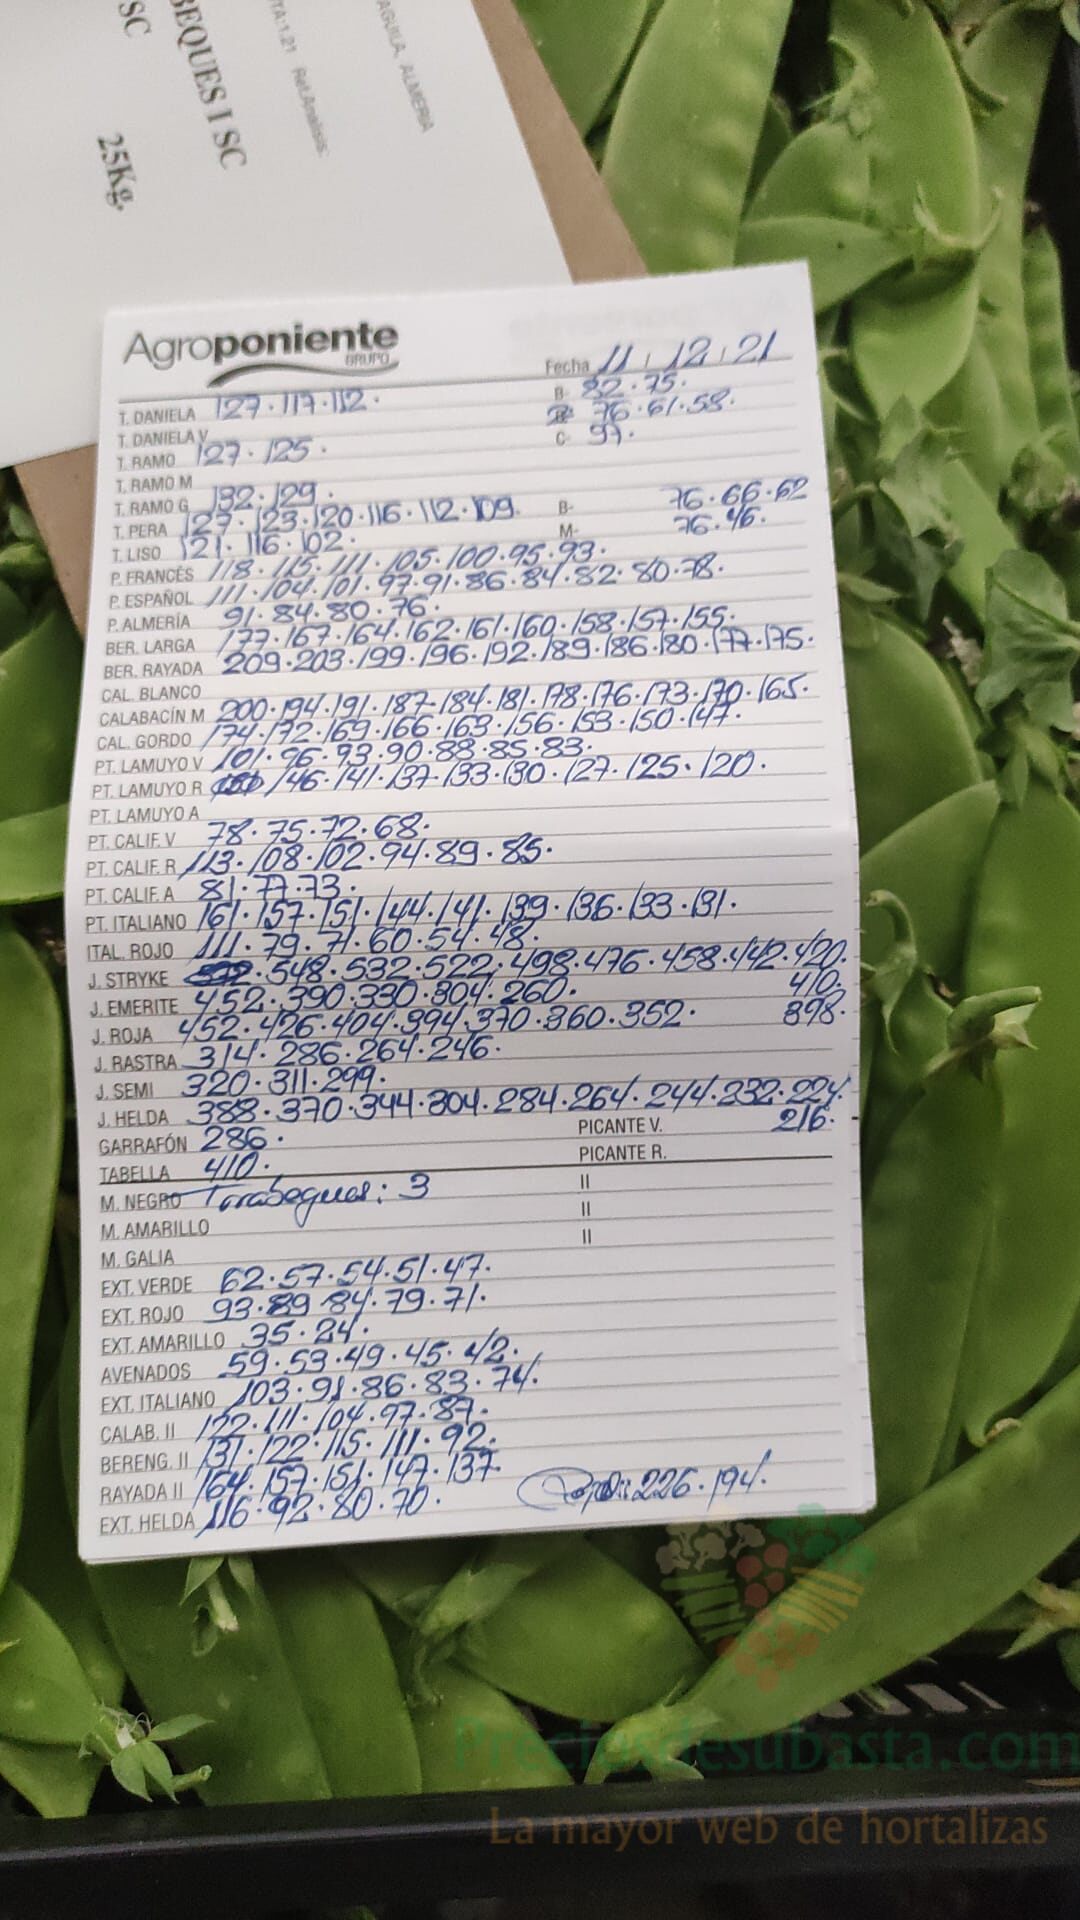 BEQUES I SC
SC
25Kg.
TA:1.21 Ref.Analisis:
AGUILA, ALMERIA
Agroponiente
GRUPO
Fecha 11 / 12 / 21
T. DANIELA 127·117·112. B- 82·75.
T. DANIELA V 76·61·58.
T. RAMO 127·125· C- 97.
T. RAMO M
T. RAMO G 132·129·
T. PERA 127·123·120·116·112·109. B- 76·66·62
T. LISO 121·116·102· M- 76·46.
P. FRANCÉS 118·115·111·105·100·95·93·
P. ESPAÑOL 111·104·101·97·91·86·84·82·80·78.
P. ALMERÍA 91·84·80·76·
BER. LARGA 177·167·164·162·161·160·158·157·155.
BER. RAYADA 209·203·199·196·192·189·186·180·177·175·
CAL. BLANCO
CALABACÍN M 200·194·191·187·184·181·178·176·173·170·165.
CAL. GORDO 174·172·169·166·163·156·153·150·147.
PT. LAMUYO V 101·96·93·90·88·85·83.
PT. LAMUYO R 146·141·137·133·130·127·125·120·
PT. LAMUYO A
PT. CALIF. V 78·75·72·68.
PT. CALIF. R 113·108·102·94·89·85.
PT. CALIF. A 81·77·73·
PT. ITALIANO 161·157·151·144·141·139·136·133·131.
ITAL. ROJO 111·79·71·60·54·48.
J. STRYKE ·548·532·522·498·476·458·442·420.
J. EMERITE 452·390·330·304·260. 410.
J. ROJA 452·426·404·394·370·360·352. 898.
J. RASTRA 314·286·264·246.
J. SEMI 320·311·299.
J. HELDA 388·370·344·304·284·264·244·232·224.
GARRAFÓN 286· PICANTE V. 216.
TABELLA 410. PICANTE R.
M. NEGRO Tirabeques: 3 II
M. AMARILLO II
M. GALIA II
EXT. VERDE 62·57·54·51·47.
EXT. ROJO 93·89·84·79·71.
EXT. AMARILLO 35·24.
AVENADOS 59·53·49·45·42·
EXT. ITALIANO 103·91·86·83·74.
CALAB. II 122·111·104·97·87·
BERENG. II 131·122·115·111·92.
RAYADA II 164·157·151·147·137.
EXT. HELDA 116·92·80·70. 226·194.
Preciosdesubasta.com
La mayor web de hortalizas